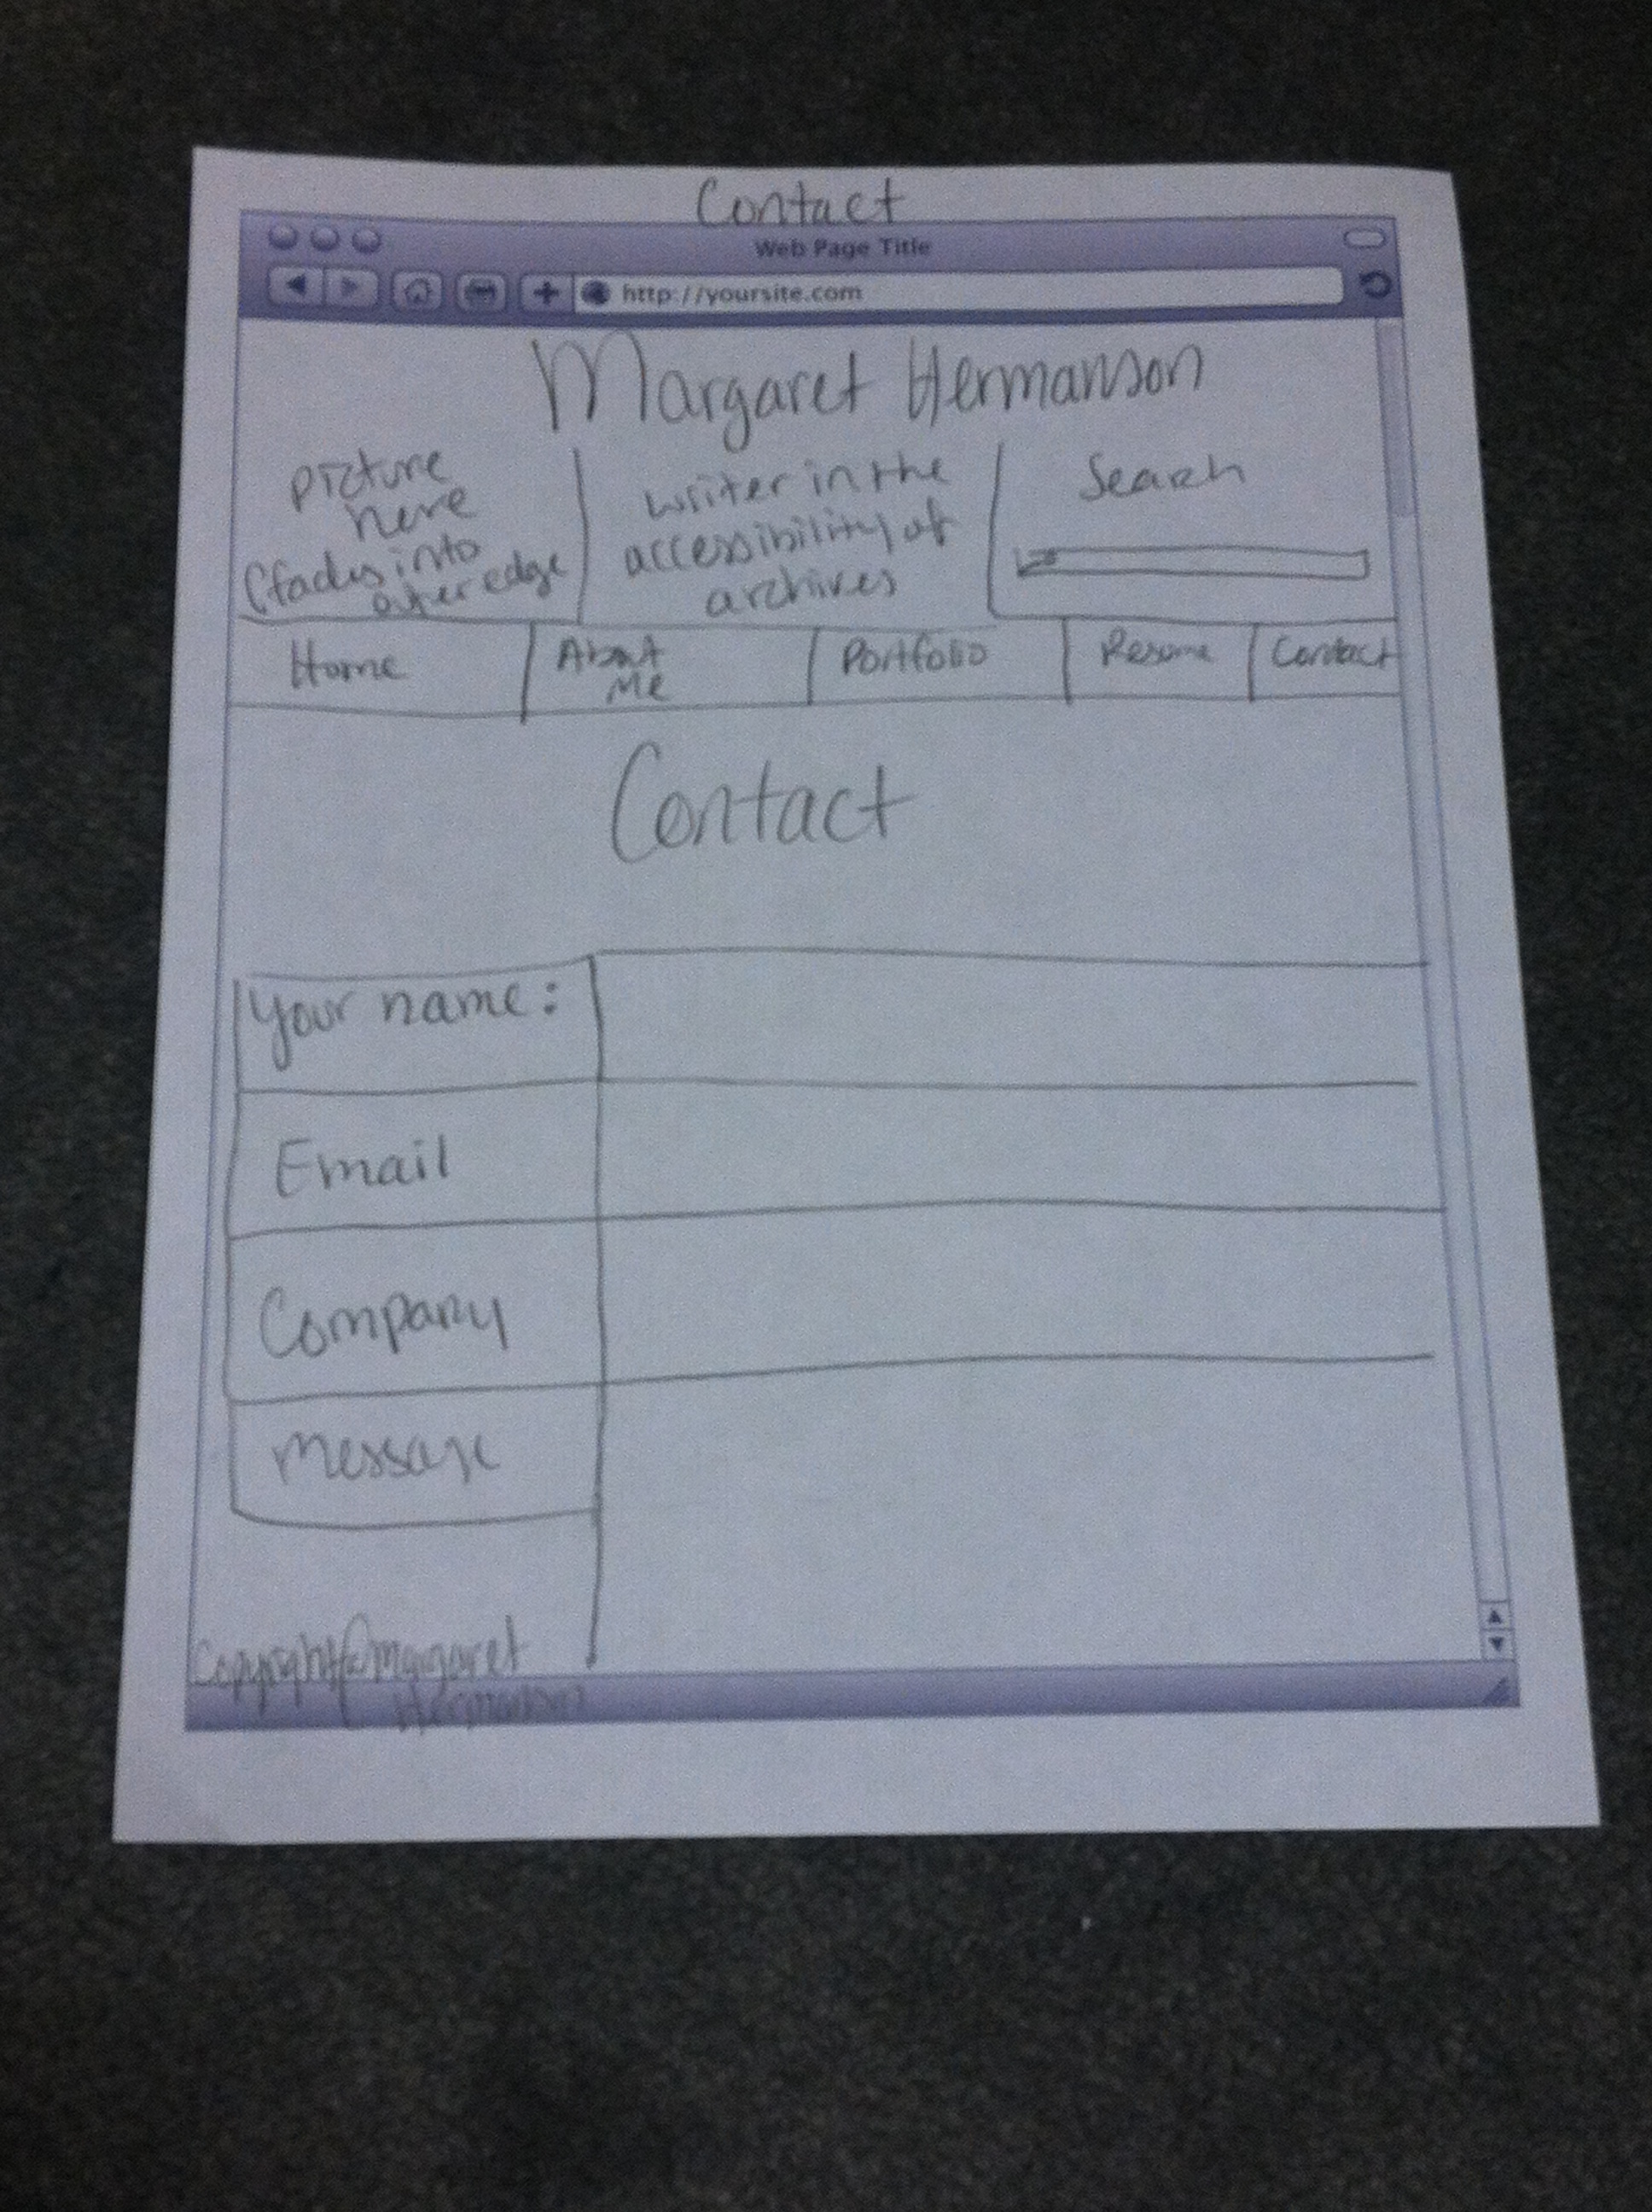 Contact
Web Page Title
http://yoursite.com
Margaret Hermanson
Picture
here
(fades into
outer edge
writer in the
accessibility of
archives
Search
Home
About
Me
Portfolio
Resume
Contact
Contact
Your name:
Email
Company
Message
Copyright©Margaret
Hermanson